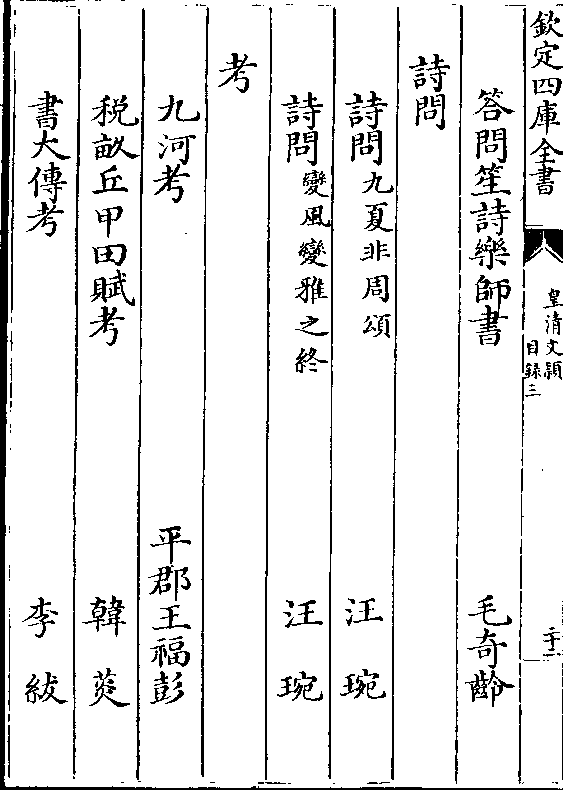 欽定四庫全書
皇清文穎
目録三
二十二
答問笙詩樂師書 毛奇齡
詩問
詩問九夏非周頌 汪琬
詩問變風變雅之終 汪琬
考
九河考 平郡王福彭
税畝丘甲田賦考 韓菼
書大傳考 李紱